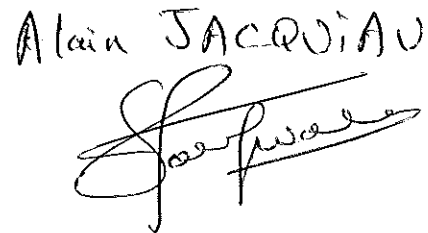 Alain JACQUiAU